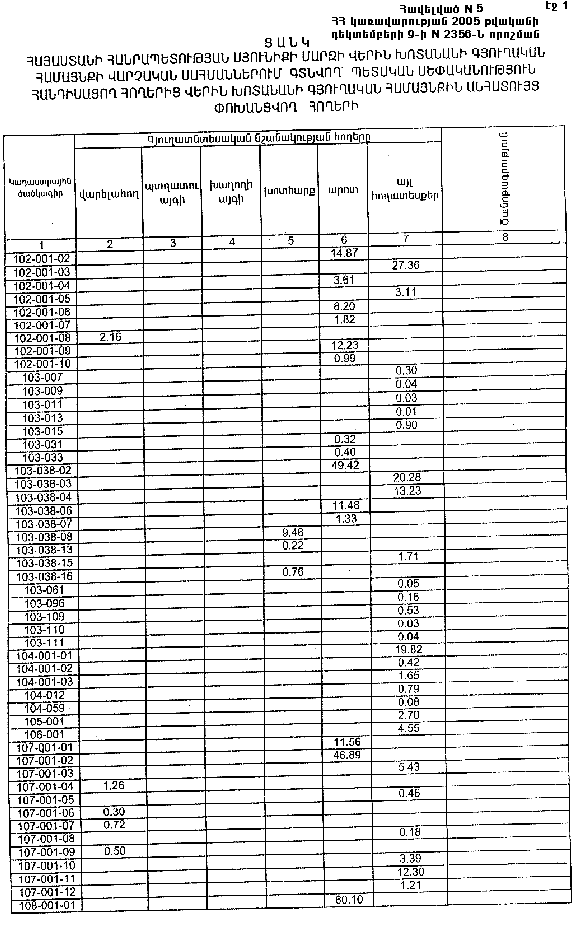 Հավելված N 5 էջ 1
ՀՀ կառավարության 2005 թվականի
դեկտեմբերի 9-ի N 2356-Ն որոշման
Ց Ա Ն Կ
ՀԱՅԱՍՏԱՆԻ ՀԱՆՐԱՊԵՏՈՒԹՅԱՆ ՍՅՈՒՆԻՔԻ ՄԱՐԶԻ ՎԵՐԻՆ ԽՈՏԱՆԱՆԻ ԳՅՈՒՂԱԿԱՆ
ՀԱՄԱՅՆՔԻ ՎԱՐՉԱԿԱՆ ՍԱՀՄԱՆՆԵՐՈՒՄ ԳՏՆՎՈՂ ՊԵՏԱԿԱՆ ՍԵՓԱԿԱՆՈՒԹՅՈՒՆ
ՀԱՆԴԻՍԱՑՈՂ ՀՈՂԵՐԻՑ ՎԵՐԻՆ ԽՈՏԱՆԱՆԻ ԳՅՈՒՂԱԿԱՆ ՀԱՄԱՅՆՔԻՆ ԱՆՀԱՏՈՒՅՑ
ՓՈԽԱՆՑՎՈՂ ՀՈՂԵՐԻ
Կադաստրային ծածկագիր
Գյուղատնտեսական նշանակության հողերը
վարելահող պտղատու այգի խաղողի այգի խոտհարք արոտ այլ հողատեսքեր
Ծանոթագրություն
1 2 3 4 5 6 7 8
102-001-02 14.87
102-001-03 27.36
102-001-04 3.61
102-001-05 3.11
102-001-06 6.20
102-001-07 1.82
102-001-08 2.16
102-001-09 12.23
102-001-10 0.99
103-007 0.30
103-009 0.04
103-011 0.03
103-013 0.01
103-015 0.90
103-031 0.32
103-033 0.40
103-038-02 49.42
103-038-03 20.28
103-038-04 13.23
103-038-06 11.46
103-038-07 1.33
103-038-09 9.46
103-038-13 0.22
103-038-15 1.71
103-038-16 0.76
103-061 0.05
103-096 0.16
103-109 0.53
103-110 0.03
103-111 0.04
104-001-01 19.82
104-001-02 0.42
104-001-03 1.65
104-012 0.79
104-059 0.08
105-001 2.70
106-001 4.55
107-001-01 11.56
107-001-02 46.89
107-001-03 5.43
107-001-04 1.26
107-001-05 0.46
107-001-06 0.30
107-001-07 0.72
107-001-08 0.18
107-001-09 0.50
107-001-10 3.39
107-001-11 12.30
107-001-12 1.21
108-001-01 60.10